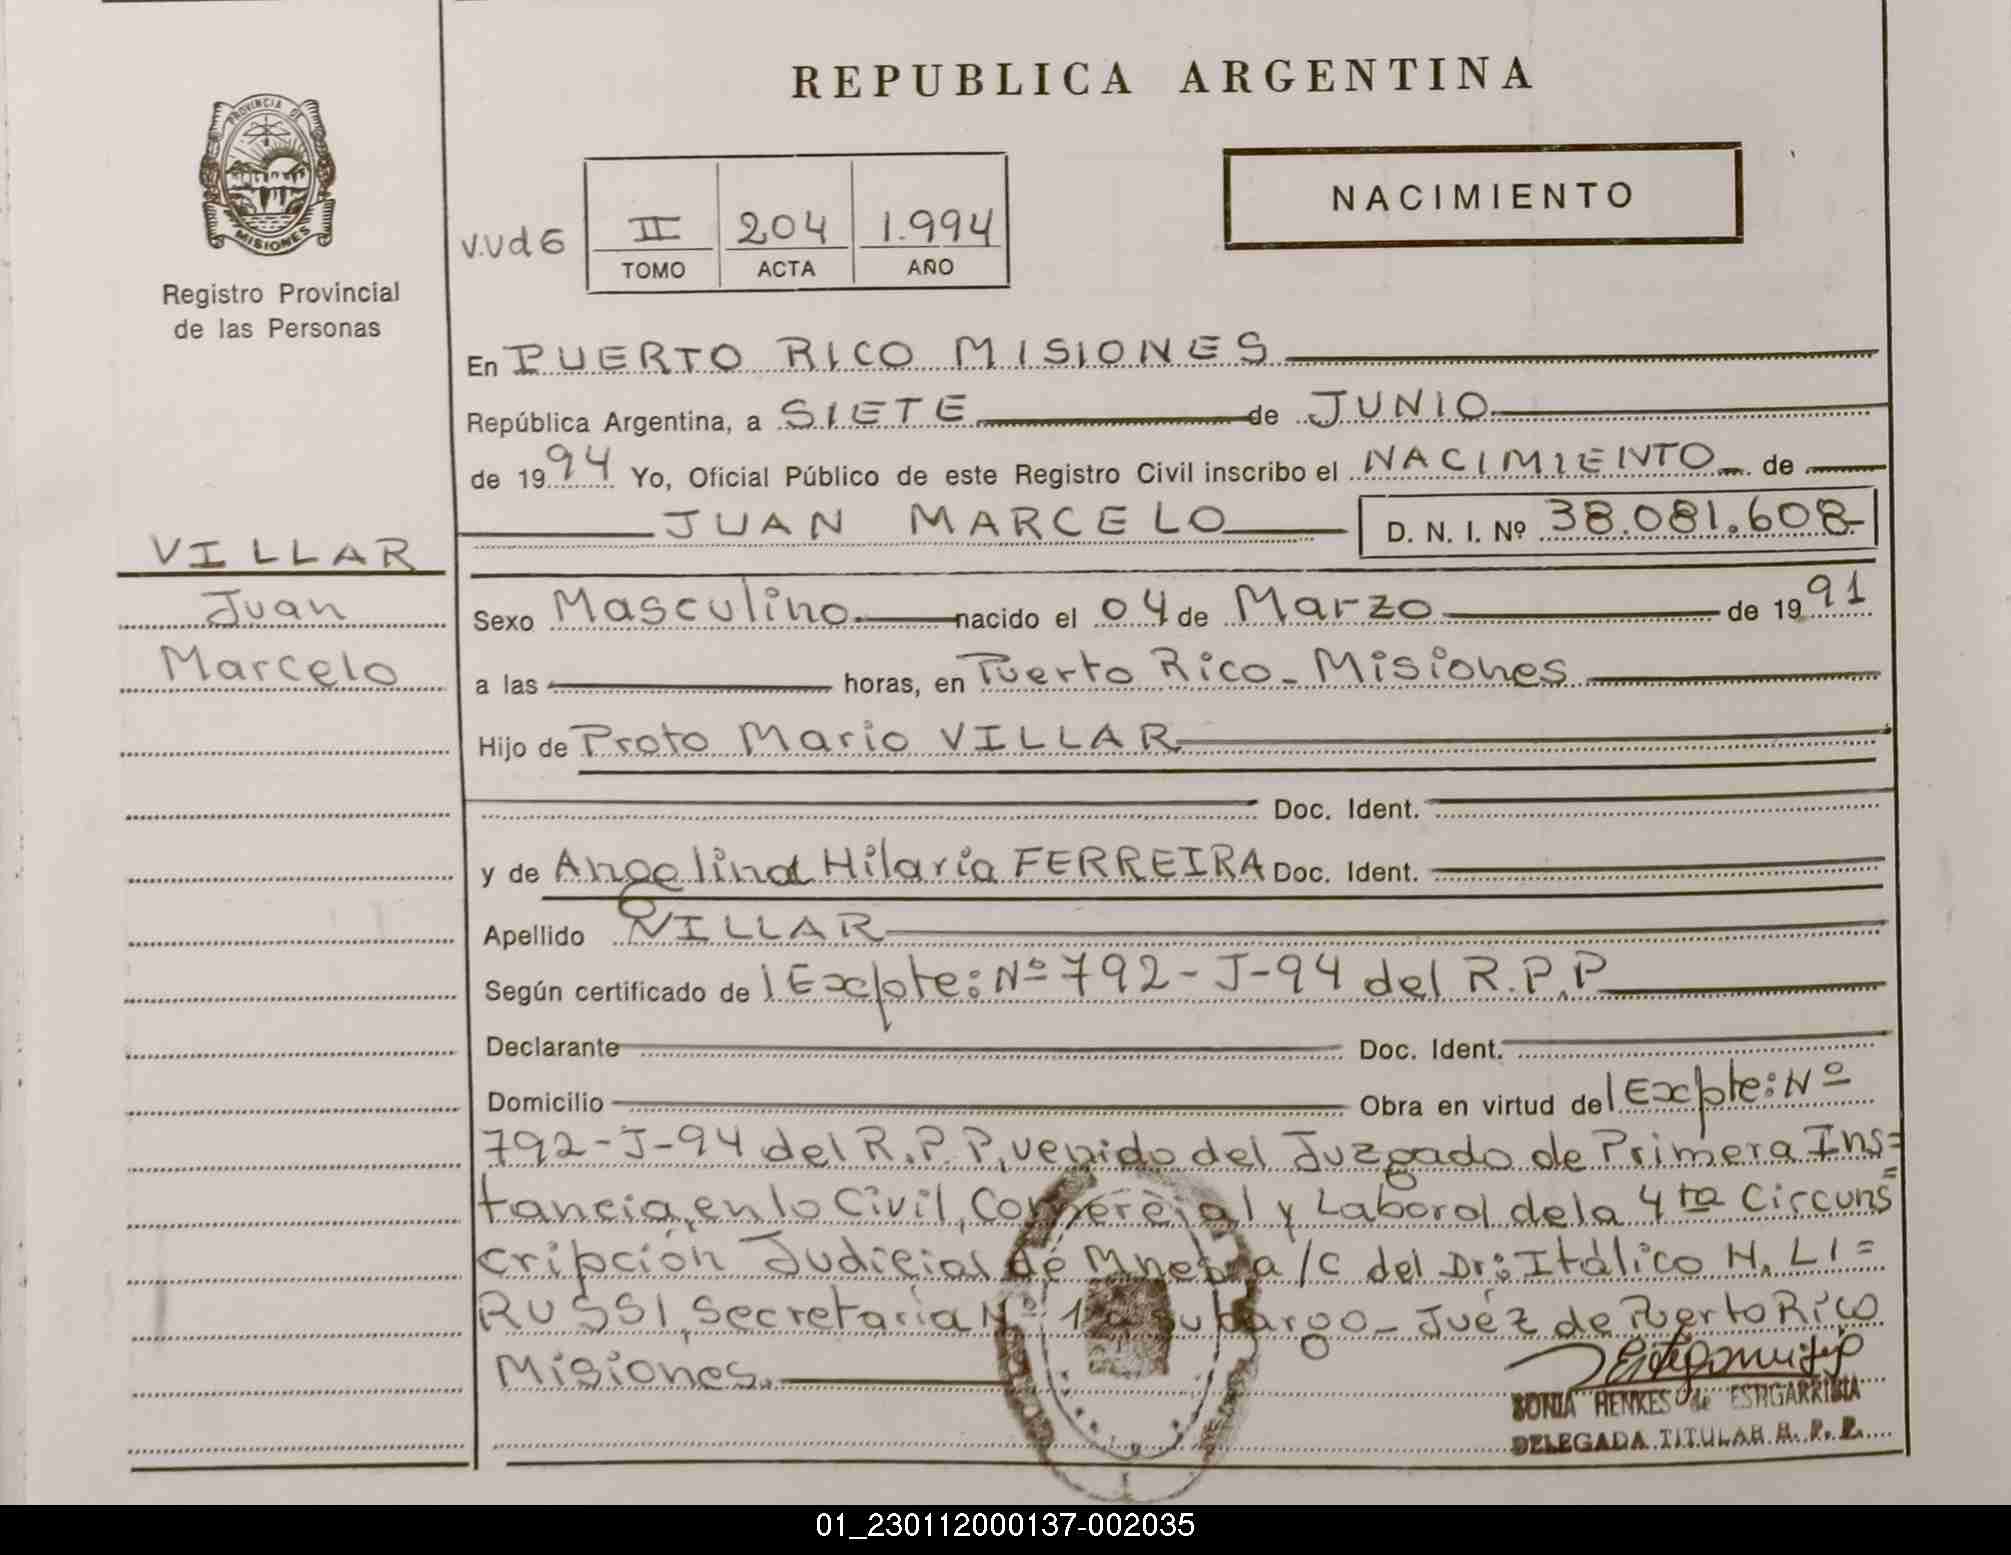 REPUBLICA ARGENTINA
PROVINCIA DE
MISIONES
Registro Provincial
de las Personas
NACIMIENTO
V.Ud6
II 204 1.994
TOMO ACTA AÑO
En PUERTO RICO MISIONES
República Argentina, a SIETE de JUNIO
de 1994 Yo, Oficial Público de este Registro Civil inscribo el NACIMIENTO de
JUAN MARCELO D. N. I. Nº 38.081.608
VILLAR
Juan
Marcelo
Sexo Masculino nacido el 04 de Marzo de 1991
a las horas, en Puerto Rico - Misiones
Hijo de Proto Mario VILLAR
Doc. Ident.
y de Angelina Hilaria FERREIRA Doc. Ident.
Apellido VILLAR
Según certificado de l Excpte: Nº 792-J-94 del R.P.P
Declarante Doc. Ident.
Domicilio Obra en virtud del Excpte: Nº
792-J-94 del R.P.P, venido del Juzgado de Primera Ins=
tancia, en lo Civil, Comercial y Laboral de la 4ta Circuns=
cripción Judicial de a/c del Dr: Itálico N. LI=
RUSSI, Secretaría Nº 1 Juéz de Puerto Rico
Misiones.
SONIA HENKES de ESTIGARRIBIA
DELEGADA TITULAR R. P. P.
01_230112000137-002035